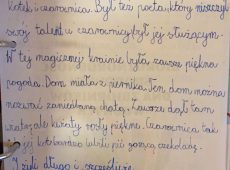 kotek i czarownica. Był też poeta, który niszczył
swój talent w czarownicy był jej służącym.
W tej magicznej krainie była zawsze piękna
pogoda. Dom miała z piernika. Ten dom można
nazwać zaniedbaną chatą. Zawsze dął tam
wiatr, ale kwiaty rosły piękne. Czarownica tak
jej kot bardzo lubili pić gorącą czekoladę.
I żyli długo i szczęśliwie.